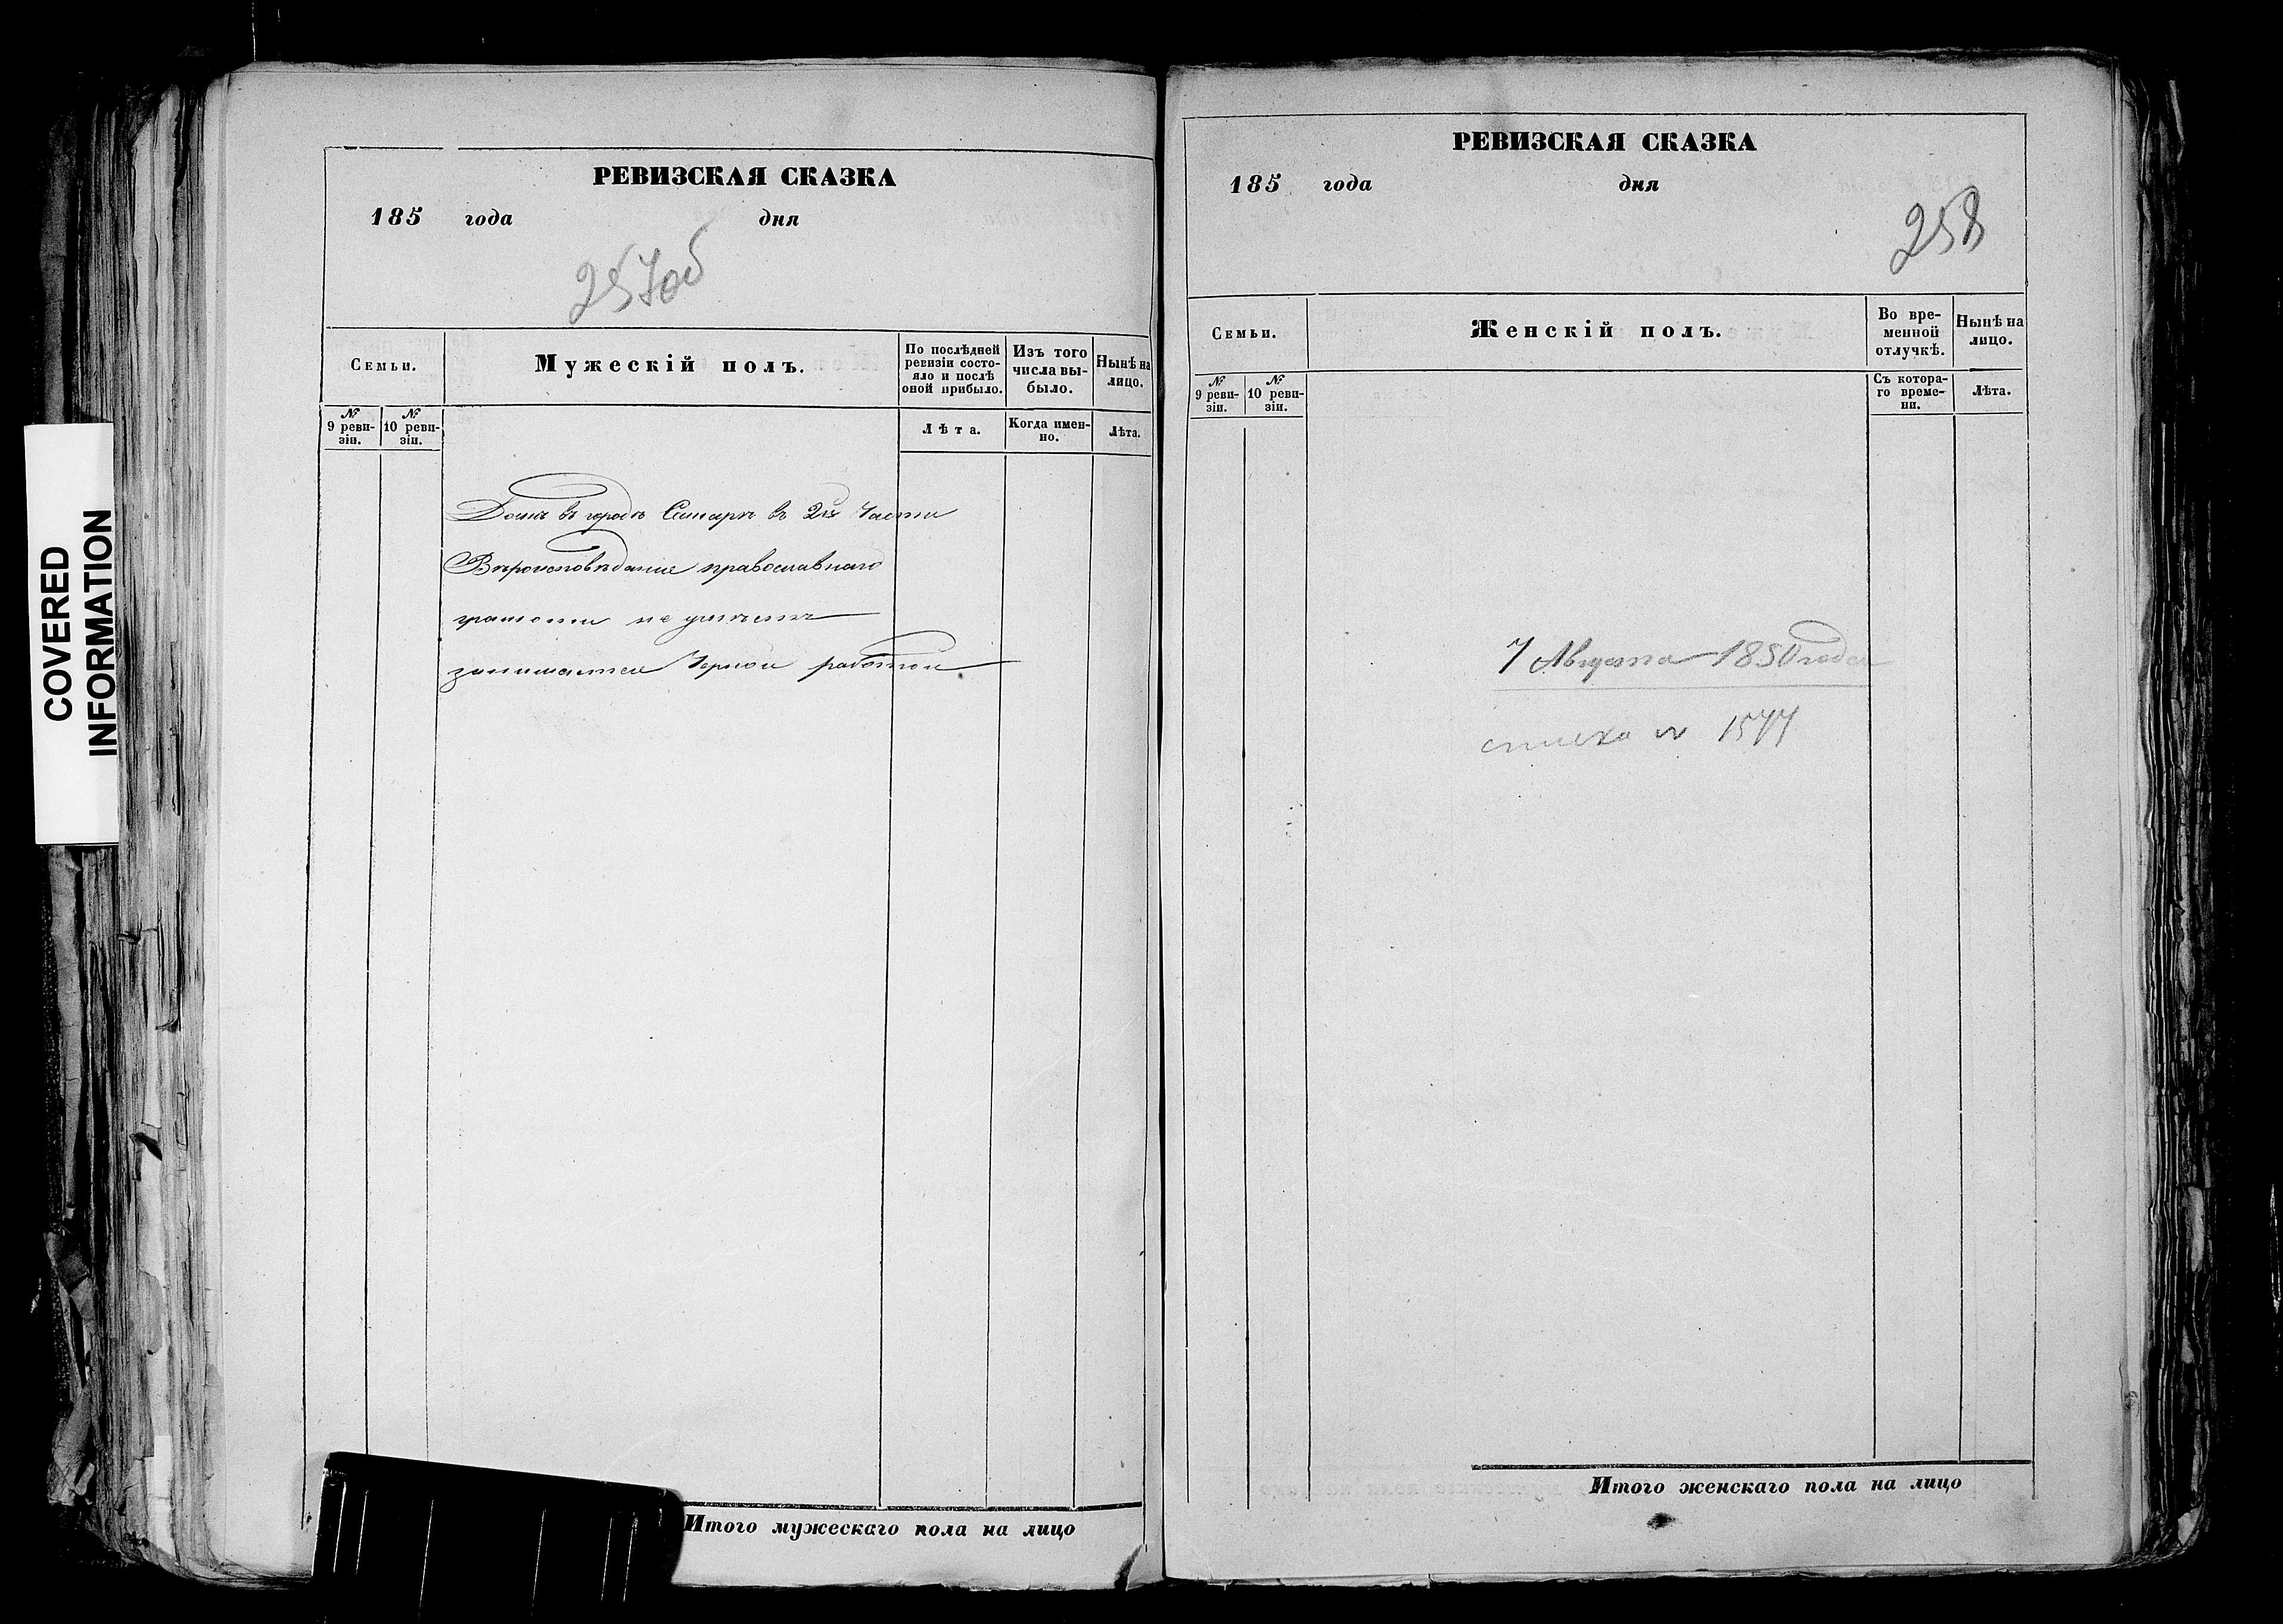 COVERED
INFORMATION
РЕВИЗСКАЯ СКАЗКА
185 года дня
257об
Семьи.
Мужескій полъ.
По послѣдней
ревизіи состо-
яло и послѣ
оной прибыло.
Изъ того
числа вы-
было.
Нынѣ на
лицо.
№
9 реви-
зіи.
№
10 реви-
зіи.
Лѣта.
Когда имен-
но.
Лѣта.
Домъ въ городѣ Самарѣ въ 2й Части
Вѣроисповѣданіе православнаго
грамоти не умѣетъ
занимается Черной работой
Итого мужескаго пола на лицо
РЕВИЗСКАЯ СКАЗКА
185 года дня
258
Семьи.
Женскій полъ.
Во вре-
менной
отлучкѣ.
Нынѣ на
лицо.
№
9 реви-
зіи.
№
10 реви-
зіи.
Съ котора-
го време-
ни.
Лѣта.
7 Августа 1850 года
1577
Итого женскаго пола на лицо